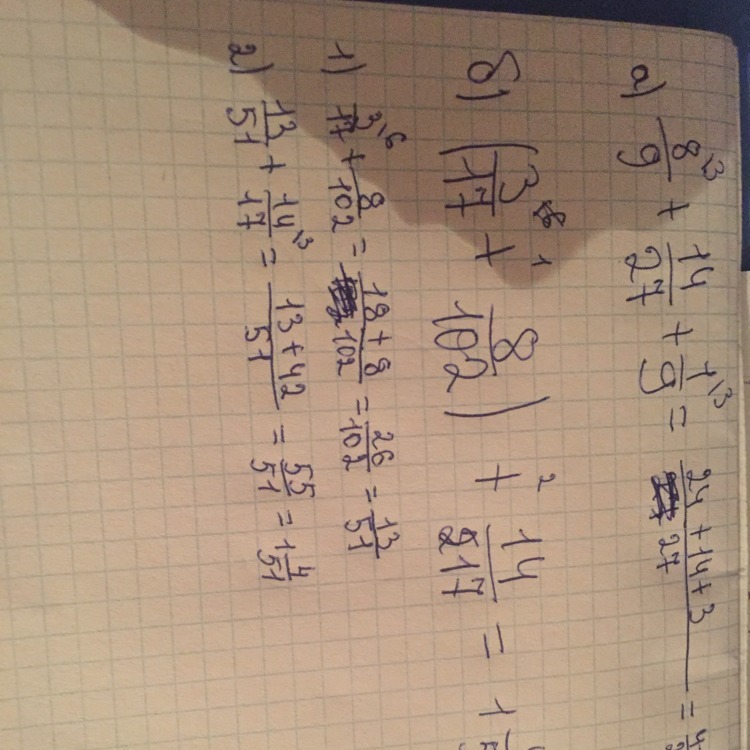 а) 8/9 + 14/27 + 1/9 = (24 + 14 + 3)/27 =
б) (3/17 + 8/102) + 14/17 = 1
1) 3/17 + 8/102 = (18 + 8)/102 = 26/102 = 13/51
2) 13/51 + 14/17 = (13 + 42)/51 = 55/51 = 1 4/51